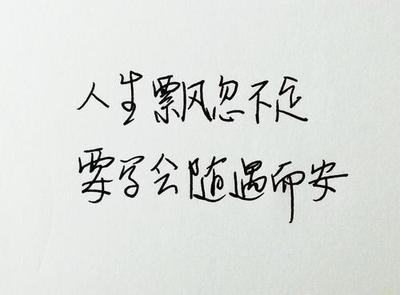 人生飘忽不定
要学会随遇而安